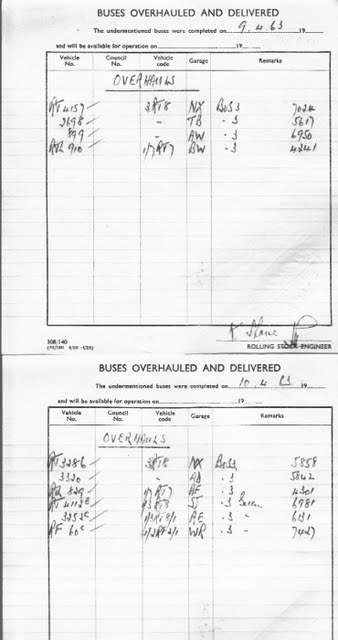 BUSES OVERHAULED AND DELIVERED
The undermentioned buses were completed on 9.4.63 19
and will be available for operation on 19
Vehicle No. Council No. Vehicle code Garage Remarks
OVERHAULS
RT 4157 3RT8 NX BoS3 7024
2698 - TB - 3 5617
899 - AW - 3 6950
RT2 910 1/7 RT7 BW - 3 4241
308/140
ROLLING STOCK ENGINEER
BUSES OVERHAULED AND DELIVERED
The undermentioned buses were completed on 10.4.63 19
and will be available for operation on 19
Vehicle No. Council No. Vehicle code Garage Remarks
OVERHAULS
RT 3286 3RT8 NX BoS3 5858
3320 - - 3 5842
829 1/7 RT7 AF - 3 4301
RT 4112 3RT8 - 3 6981
3252 AE - 3 "
RF 60 WR - 3 7427